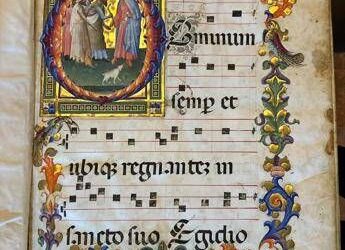 DOminum
semp et
ubiqꝫ regnanteꝫ in
sancto suo Egidio